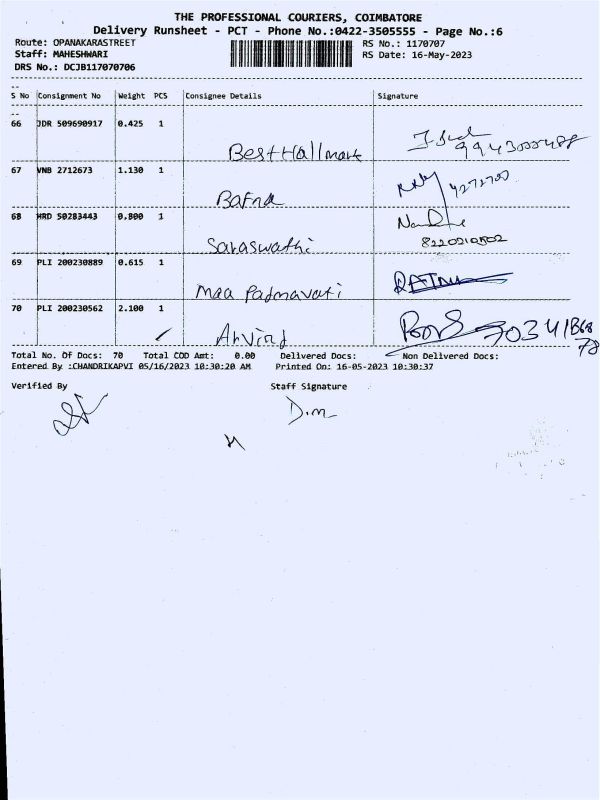 THE PROFESSIONAL COURIERS, COIMBATORE
Delivery Runsheet - PCT - Phone No.:0422-3505555 - Page No.:6
Route: OPANAKARASTREET RS No.: 1170707
Staff: MAHESHWARI RS Date: 16-May-2023
DRS No.: DCJB117070706
S No Consignment No Weight PCS Consignee Details Signature
66 JDR 509690917 0.425 1
Best Hallmark
67 VNB 2712673 1.130 1
Bafna
68 HRD 50283443 0.800 1
Saraswathi 8220210502
69 PLI 200230889 0.615 1
Maa Padmavati
70 PLI 200230562 2.100 1
Arvind
Total No. Of Docs: 70 Total COD Amt: 0.00 Delivered Docs: Non Delivered Docs:
Entered By :CHANDRIKAPVI 05/16/2023 10:30:20 AM Printed On: 16-05-2023 10:30:37
Verified By Staff Signature